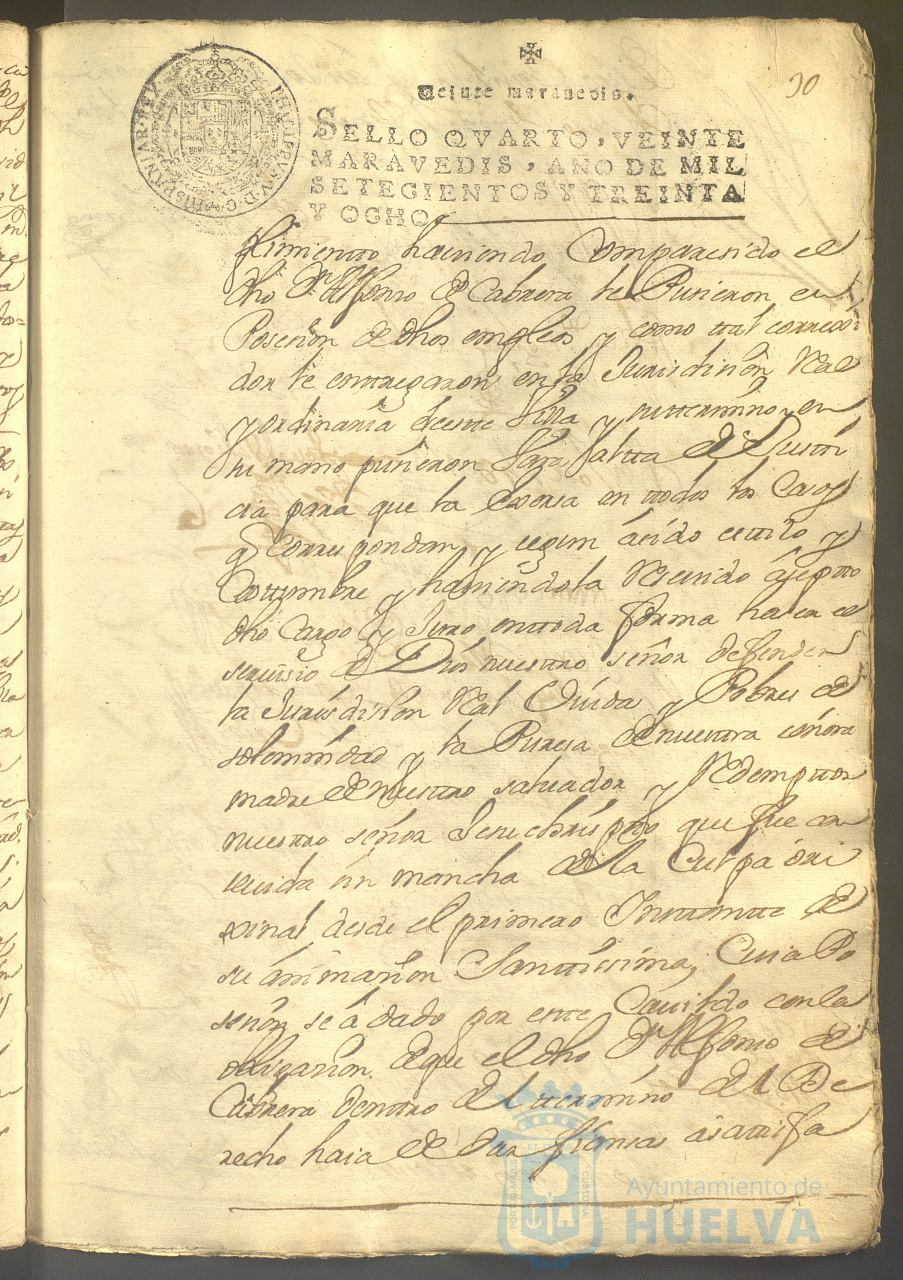 30
Veinte maravedis.
SELLO QVARTO, VEINTE
MARAVEDIS, AÑO DE MIL
SETECIENTOS Y TREINTA
Y OCHO
PHILIPPUS V D G HISPANIAR REX
plimiento haviendo Comparesido el
dho Dn Alfonso de Cabrera le Pusieron en
Posesion de dhos empleos y como tal correxi
dor le entregaron en la Jurisdision Real
y ordinaria de este Villa y su termino y en
su mano pusieron Vara alta de Justi
cia para que la exersa en todos los Casos
q Correspondan y segun á sido estilo y
Costumbre y haviendola Resevido asepto
dho Cargo y Juro en toda forma haser el
servisio de Dios nuestro señor defender
la Jurisdision Real Viudas y Pobres de
solemnidad y la Puresa de nuestra señora
madre de nuestro salvador y Redemptor
nuestro señor Jesuchrispto que fue con
sevida sin mancha de la Culpa ori
xinal desde el primero Instante de
su animasion Santissima, Cuia Po
sesion se á dado por este Cavildo con la
obligasion de que el dho Dn Alfonso de
Cabrera dentro del termino del De
recho haia de Dar fianzas á satisfa
Ayuntamiento de
HUELVA